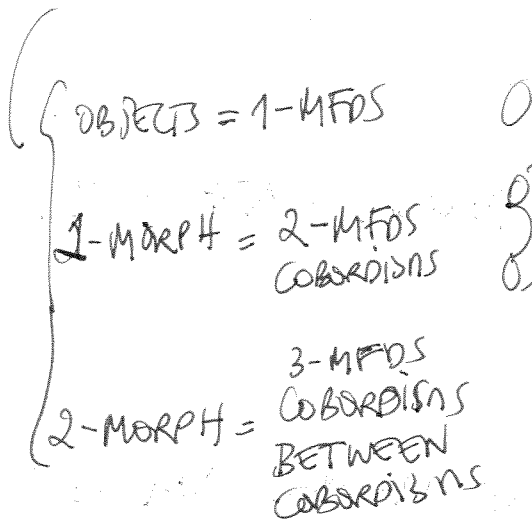 OBJECTS = 1-MFDS
1-MORPH = 2-MFDS
COBORDISMS
3-MFDS
2-MORPH = COBORDISMS
BETWEEN
COBORDISMS